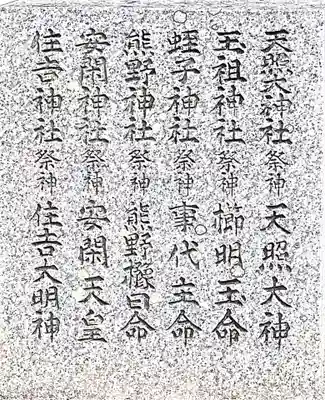 天照大神社祭神 天照大神
玉祖神社祭神 櫛明玉命
蛭子神社祭神 事代主命
熊野神社祭神 熊野櫲日命
安閑神社祭神 安閑天皇
住吉神社祭神 住吉大明神